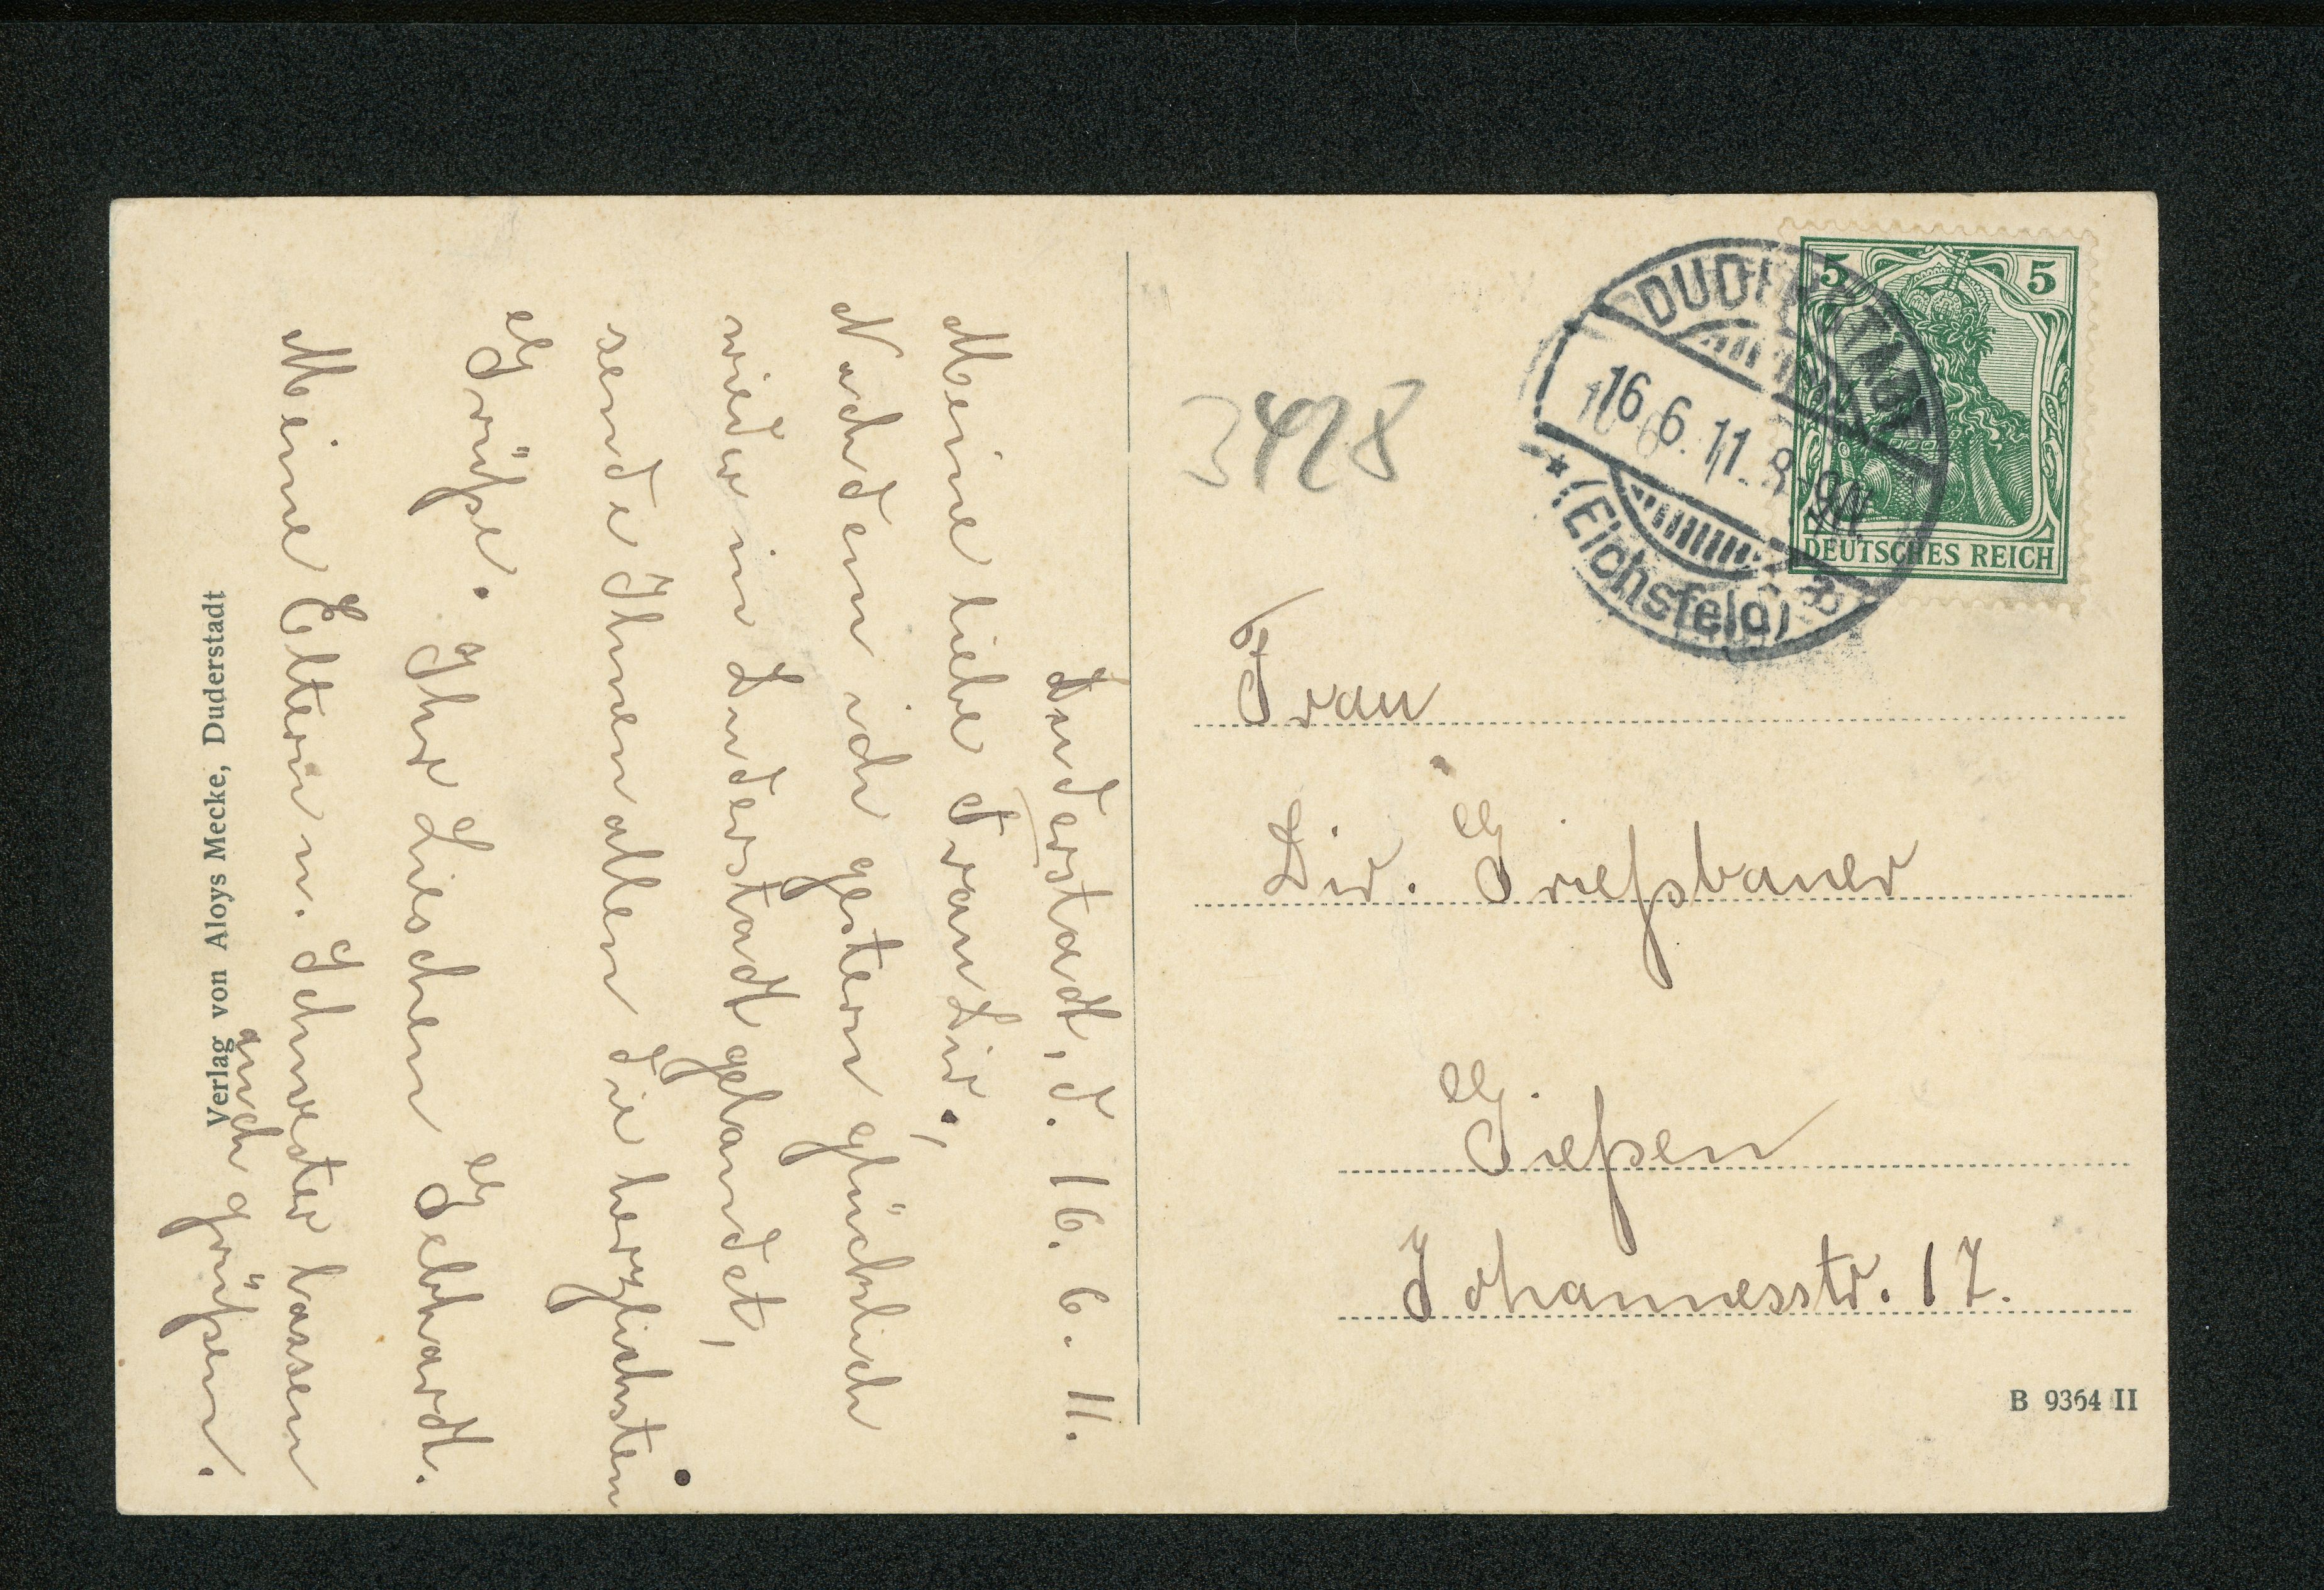 Duderstadt, d. 16. 6. 11.
Meine liebe Frau Dir.,
Nachdem ich gestern glücklich
wieder in Duderstadt gelandet,
sende Ihnen allen die herzlichsten
Grüße. Ihr Lieschen Gebhardt.
Meine Eltern u. Schwester lassen
auch grüßen.
Verlag von Aloys Mecke, Duderstadt
3428
DUDERSTADT
16.6.11. 8-9N.
* (Eichsfeld)
5 5
DEUTSCHES REICH
Frau
Dir. Grießbauer
Gießen
Johannesstr. 17.
B 9364 II